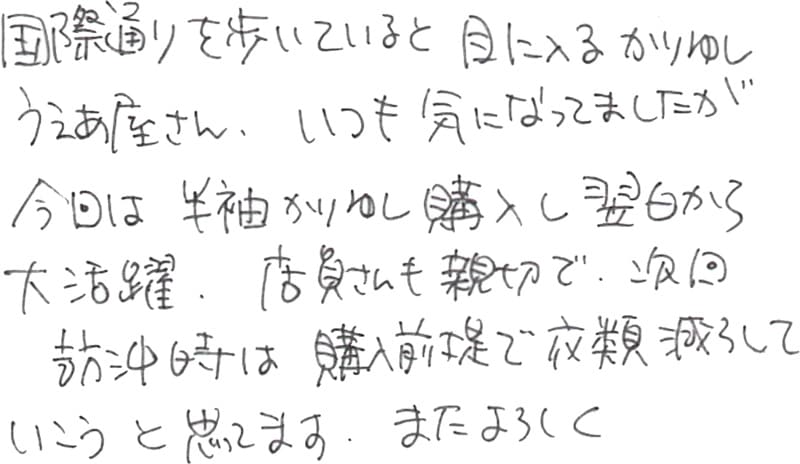 国際通りを歩いていると目に入るかりゆし
うえあ屋さん、いつも気になってましたが
今回は半袖かりゆし購入し翌日から
大活躍．店員さんも親切で．次回
訪沖時は購入前提で衣類減らして
いこうと思ってます．またよろしく